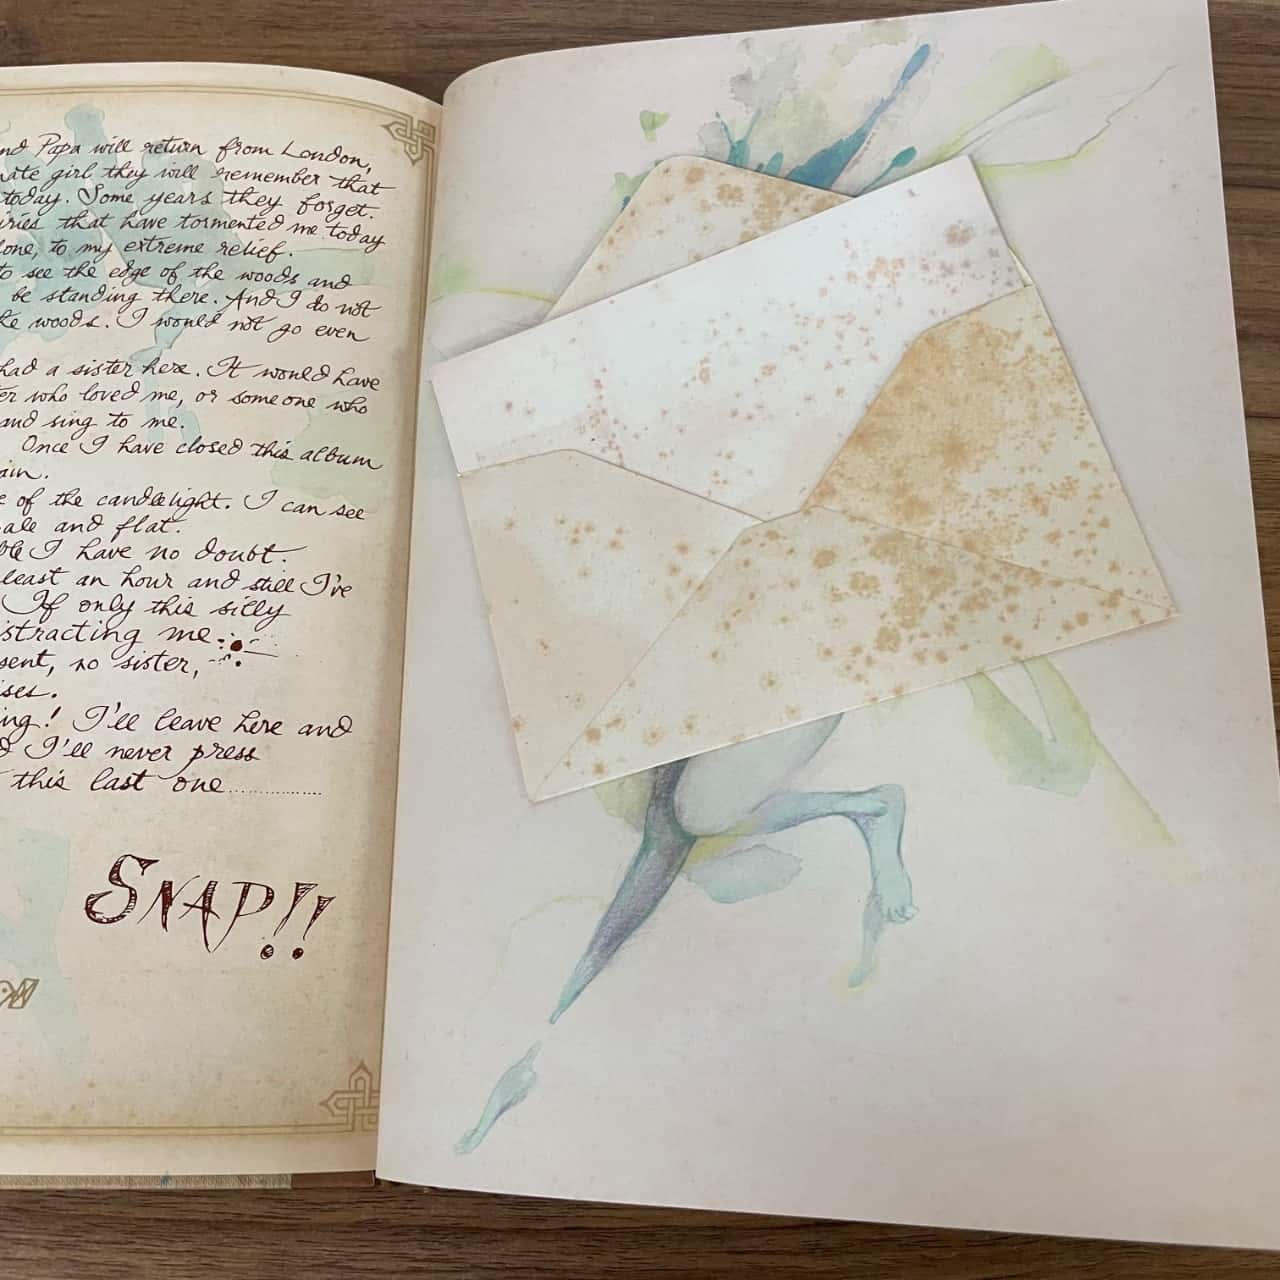 and Papa will return from London,
nate girl they will remember that
today. Some years they forget.
iries that have tormented me today
lone, to my extreme relief.
to see the edge of the woods and
be standing there. And I do not
ke woods. I would not go even
had a sister here. It would have
er who loved me, or someone who
and sing to me.
Once I have closed this album
ain.
e of the candlelight. I can see
ale and flat.
ble I have no doubt.
least an hour and still I've
If only this silly
istracting me
sent, no sister,
ises.
ing! I'll leave here and
d I'll never press
this last one..............
SNAP!!